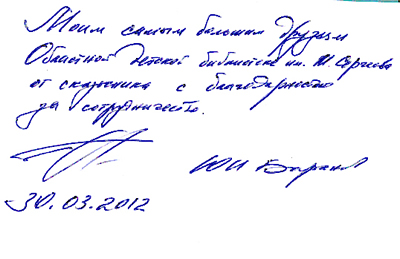 Моим самым большим друзьям
Областной детской библиотеке им. М. Сергеева
от сказочника с благодарностью
за сотрудничество.
ЮИ Баранов
30.03.2012